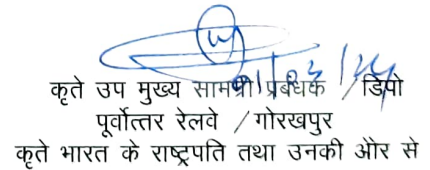 01/03/24
कृते उप मुख्य सामग्री प्रबंधक / डिपो
पूर्वोत्तर रेलवे / गोरखपुर
कृते भारत के राष्ट्रपति तथा उनकी और से